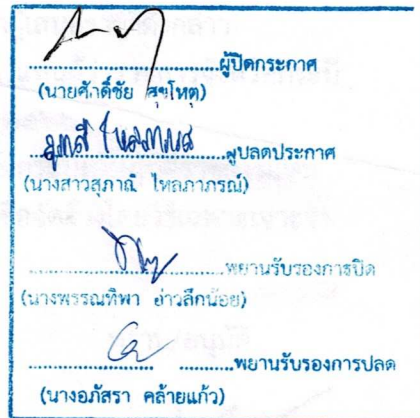 ผู้ปิดประกาศ
(นายศักดิ์ชัย สุขโหตุ)
ผู้ปลดประกาศ
(นางสาวสุภาณี ไหลภาภรณ์)
พยานรับรองการปิด
(นางพรรณทิพา อ่าวลึกน้อย)
พยานรับรองการปลด
(นางอภัสรา คล้ายแก้ว)